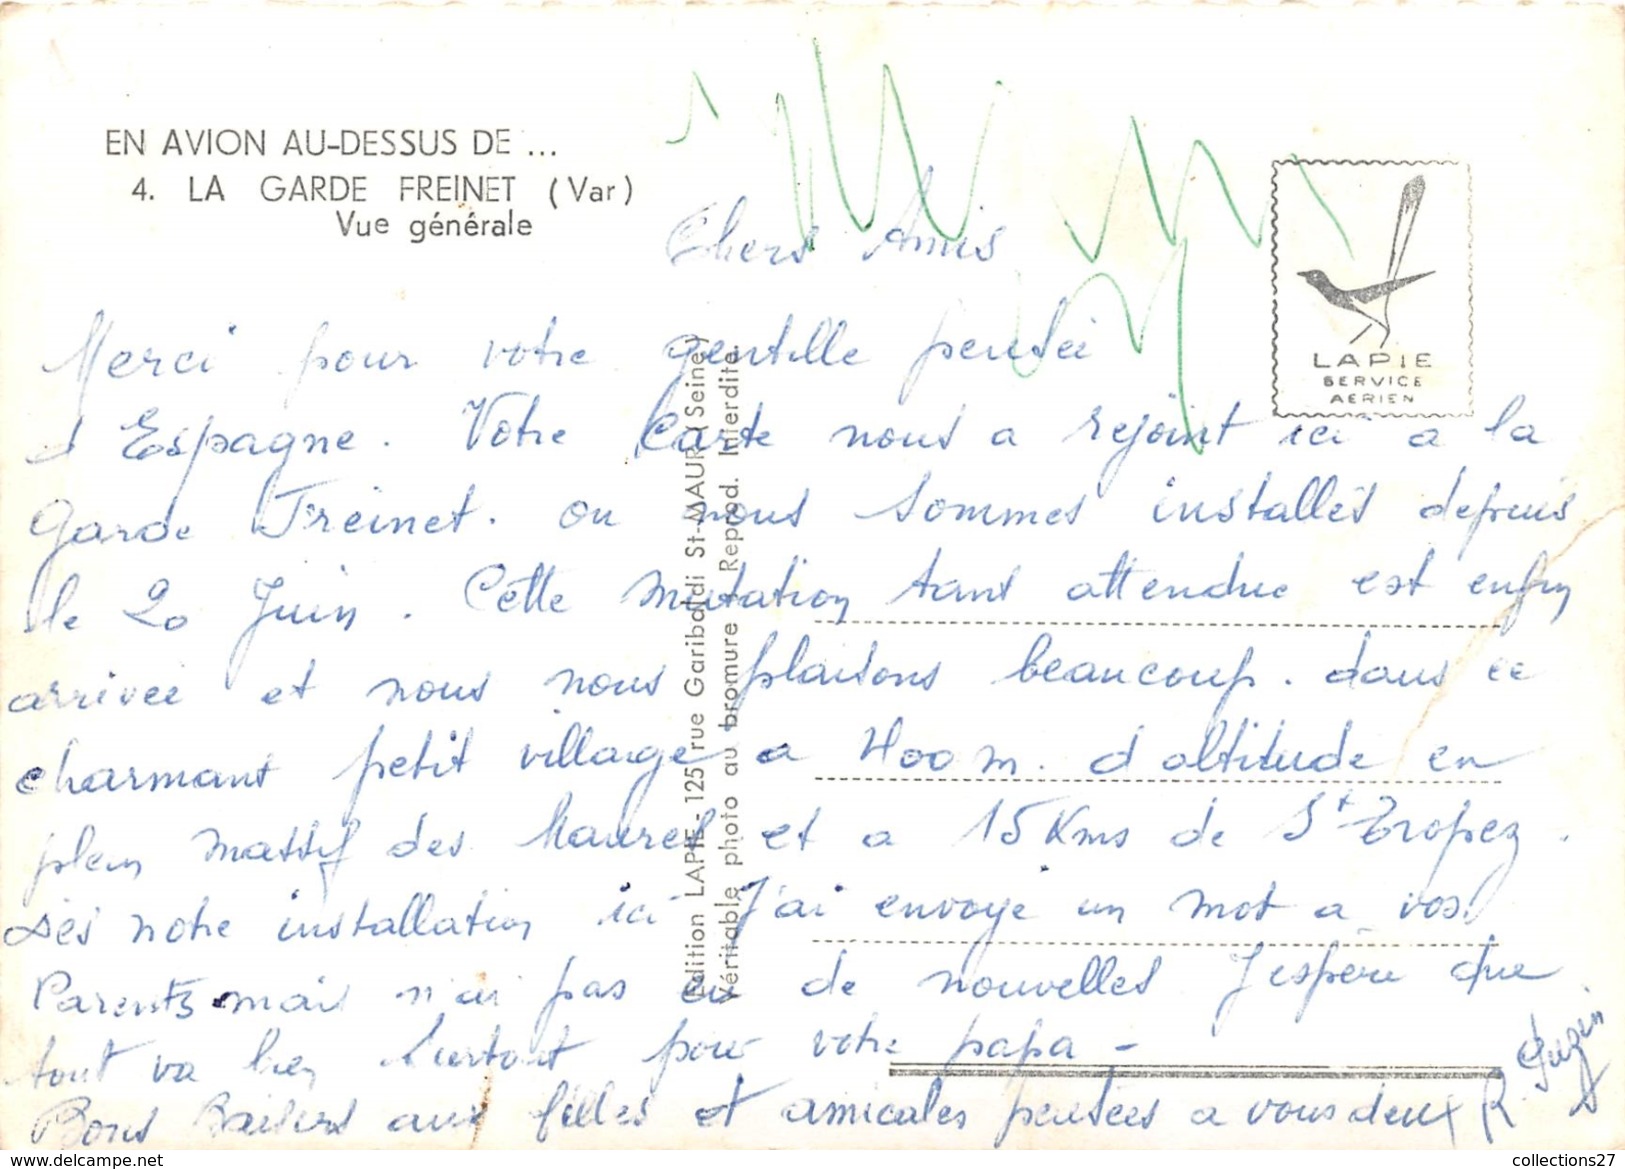 EN AVION AU-DESSUS DE ...
4. LA GARDE FREINET (Var)
Vue générale
LAPIE
SERVICE
AERIEN
Edition LAPIE - 125 rue Garibaldi St-MAUR (Seine)
Véritable photo au bromure Reprod. Interdite.
Chers Amis
Merci pour votre gentille pensée
d'Espagne. Votre carte nous a rejoint ici a la
Garde Freinet. ou nous sommes installés depuis
le 20 Juin. Cette mutation tant attendue est enfin
arrivée et nous nous plaisons beaucoup. dans ce
charmant petit village a 400 m. d'altitude en
plein massif des Maures et a 15 Kms de St Tropez.
Dès notre installation ici J'ai envoyé un mot a vos
Parents mais n'ai pas eu de nouvelles. J'espère que
tout va bien surtout pour votre papa -
Bons Baisers aux filles et amicales pensées a vous deux
R.
collections27